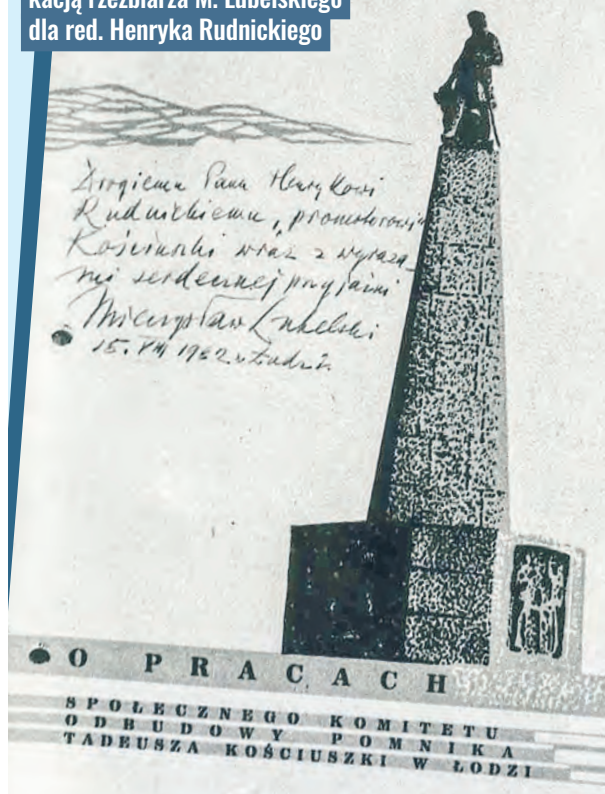 kacją rzeźbiarza M. Lubelskiego
dla red. Henryka Rudnickiego
Drogiemu Panu Henrykowi
Rudnickiemu, promotorowi
Kościuszki wraz z wyraza-
mi serdecznej przyjaźni
Mieczysław Lubelski
15. 1962 w Łodzi.
O PRACACH
SPOŁECZNEGO KOMITETU
ODBUDOWY POMNIKA
TADEUSZA KOŚCIUSZKI W ŁODZI